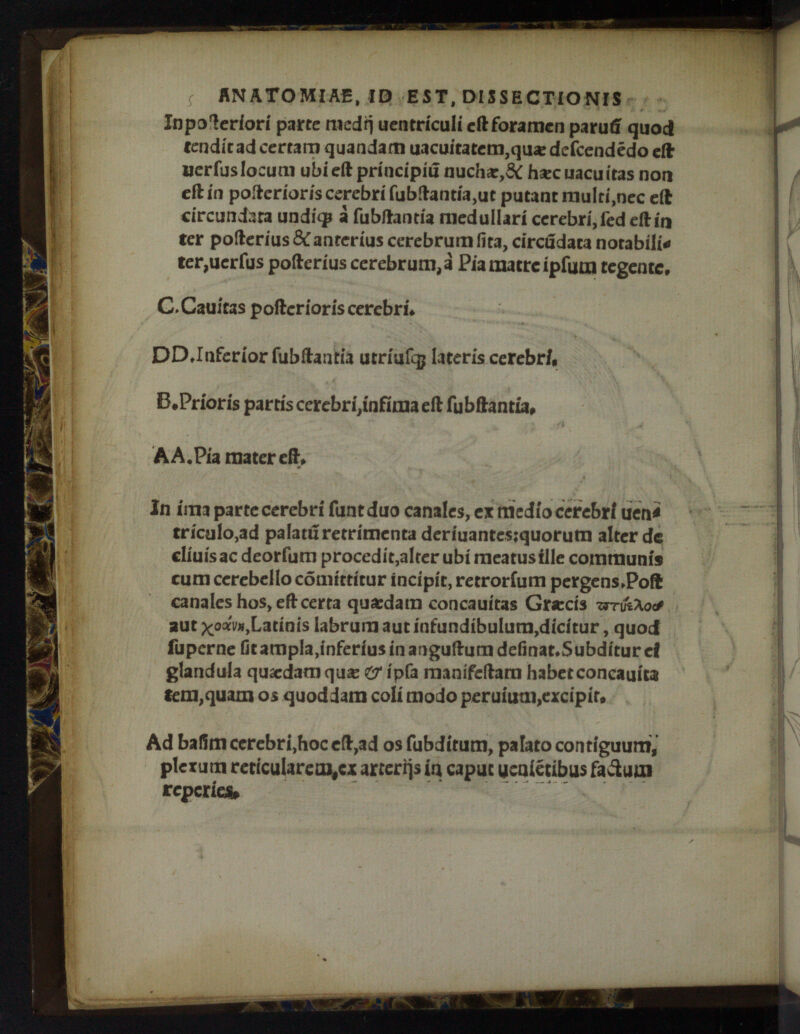 ANATOMIAE, ID EST, DISSECTIONIS
In poſteriori parte medij uentriculi eſt foramen paruũ quod
tendit ad certam quandam uacuitatem, quæ deſcendẽdo eſt
uerſus locum ubi eſt principiũ nuchæ, & hæc uacuitas non
eſt in poſterioris cerebri ſubſtantia, ut putant multi, nec eſt
circundata undiqꝫ à ſubſtantia medullari cerebri, ſed eſt in
ter poſterius & anterius cerebrum ſita, circũdata notabili-
ter, uerſus poſterius cerebrum, à Pia matre ipſum tegente.
C. Cauitas poſterioris cerebri.
DD. Inferior ſubſtantia utriuſqꝫ lateris cerebri.
B. Prioris partis cerebri, infima eſt ſubſtantia.
AA. Pia mater eſt.
In ima parte cerebri ſunt duo canales, ex medio cerebri uen-
triculo, ad palatũ retrimenta deriuantes: quorum alter de
cliuis ac deorſum procedit, alter ubi meatus ille communis
cum cerebello cõmittitur incipit, retrorſum pergens. Poſt
canales hos, eſt certa quædam concauitas Græcis πτύελος
aut χοάνη, Latinis labrum aut infundibulum, dicitur, quod
ſuperne ſit ampla, inferius in anguſtum deſinat. Subditur ei
glandula quædam quæ & ipſa manifeſtam habet concauita
tem, quam os quoddam coli modo peruium, excipit.
Ad baſim cerebri, hoc eſt, ad os ſubditum, palato contiguum,
plexum reticularem, ex arterijs in caput ueniẽtibus factum
reperies.